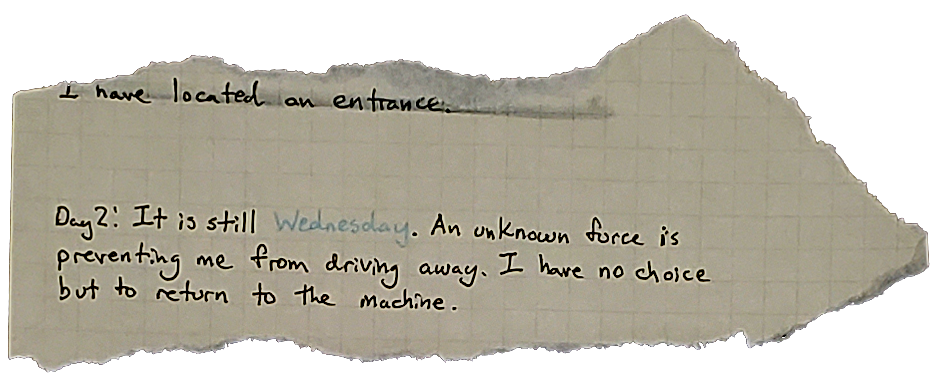 I have located an entrance.
Day 2: It is still Wednesday. An unknown force is
preventing me from driving away. I have no choice
but to return to the machine.